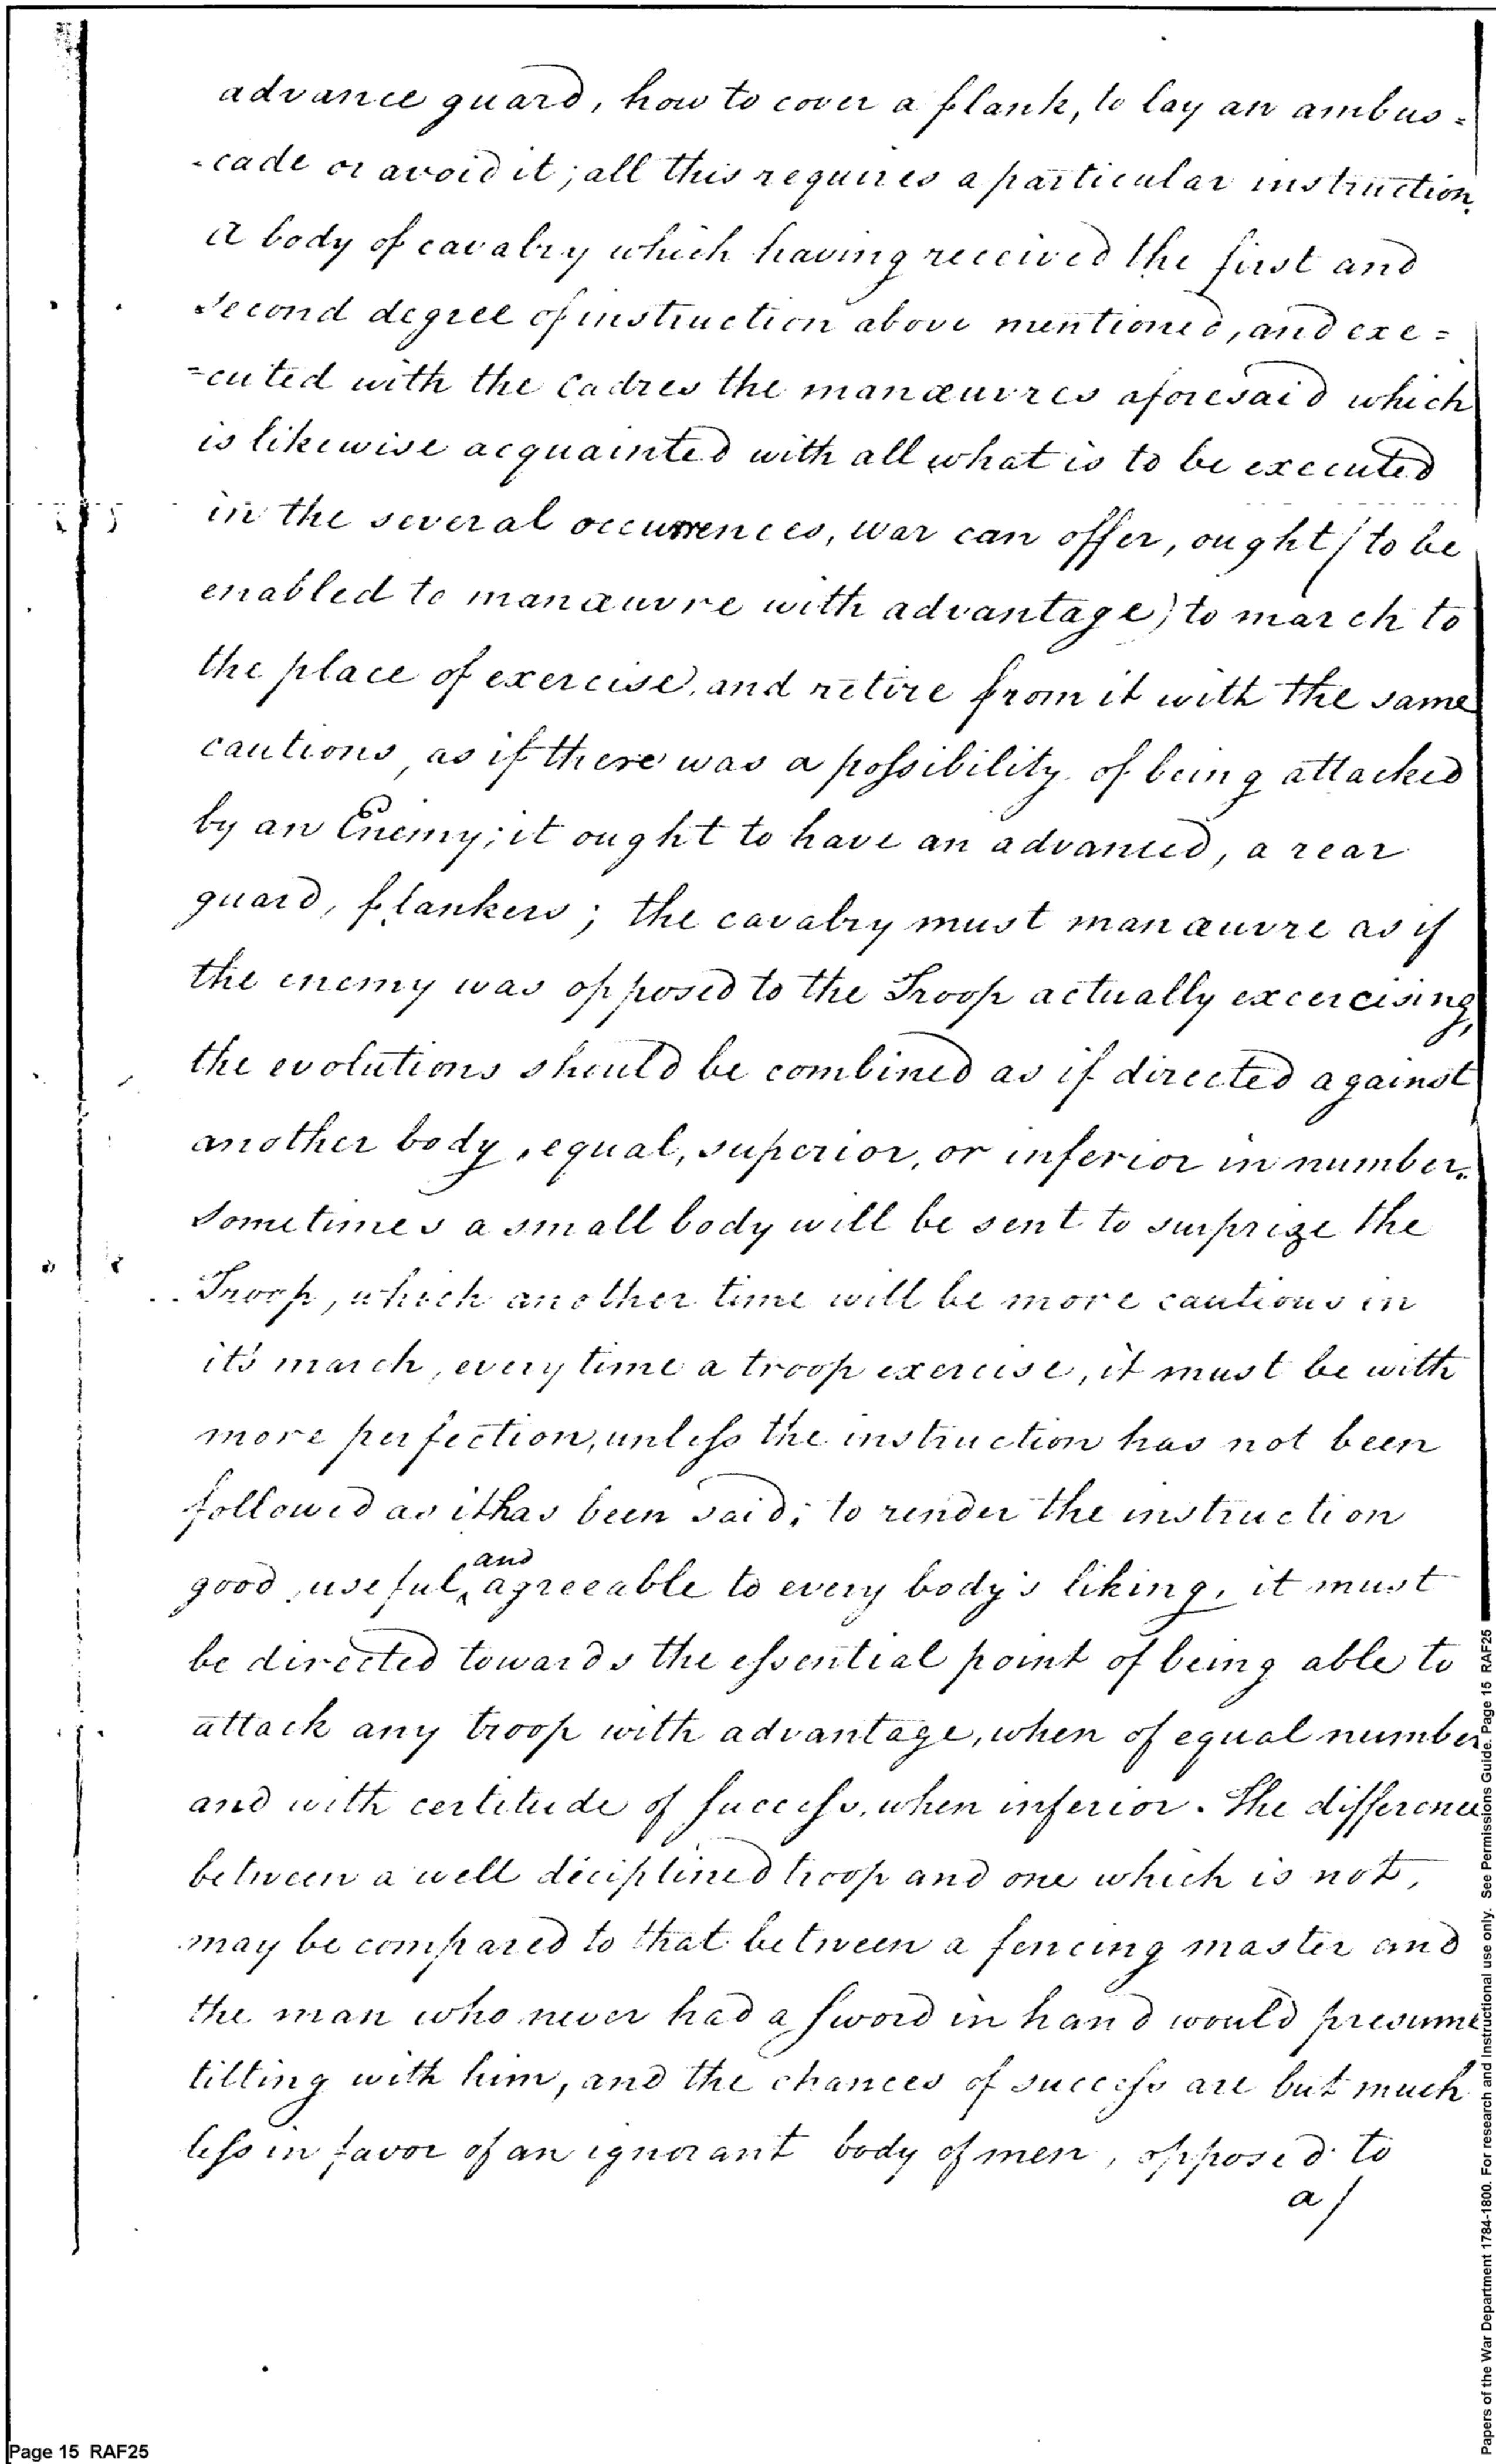 advance guard, how to cover a flank, to lay an ambus=
-cade or avoid it; all this requires a particular instruction.
A body of cavalry which having received the first and
second degree of instruction above mentioned, and exe=
=cuted with the cadres the manœuvres aforesaid which
is likewise acquainted with all what is to be executed
in the several occurrences, war can offer, ought (to be
enabled to manœuvre with advantage) to march to
the place of exercise, and retire from it with the same
cautions, as if there was a possibility of being attacked
by an Enemy; it ought to have an advanced, a rear
guard, flankers; the cavalry must manœuvre as if
the enemy was opposed to the Troop actually excercising,
the evolutions should be combined as if directed against
another body, equal, superior, or inferior in number.
Sometimes a small body will be sent to surprize the
Troop, which another time will be more cautious in
it's march, every time a troop exercise, it must be with
more perfection, unless the instruction has not been
followed as it has been said; to render the instruction
good, useful, and agreeable to every body's liking, it must
be directed towards the essential point of being able to
attack any troop with advantage, when of equal number
and with certitude of success, when inferior. The difference
between a well deciplined troop and one which is not,
may be compared to that between a fencing master and
the man who never had a sword in hand would presume
tilting with him, and the chances of success are but much
less in favor of an ignorant body of men, opposed to
a/
Page 15 RAF25
Papers of the War Department 1784-1800. For research and Instructional use only. See Permissions Guide. Page 15 RAF25